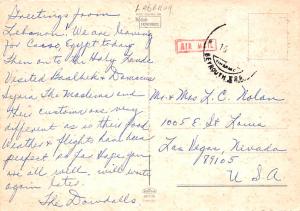 LEBANON
Greetings from
Lebanon! We are leaving
for Cairo, Egypt today
Then on to the Holy Lands.
Visited Baalbek & Damascus
Syria. The Moslems and
their customs are very
different as is their food
Weather & flights have been
perfect so far. Hope you
are all well. will write
again later.
The Dowdalls
AIR MAIL
BEYROUTH R.P.
Mr. & Mrs L. C. Nolan
1005 E. St. Louis
Las Vegas, Nevada
89105
U S A